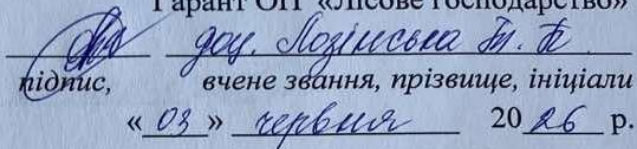 Гарант ОП «Лісове господарство»
доц. Лозінська Т. П.
підпис, вчене звання, прізвище, ініціали
«03» червня 2026 р.